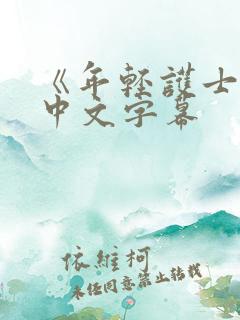 《年輕護士
中文字幕
依維柯
未经同意禁止转载